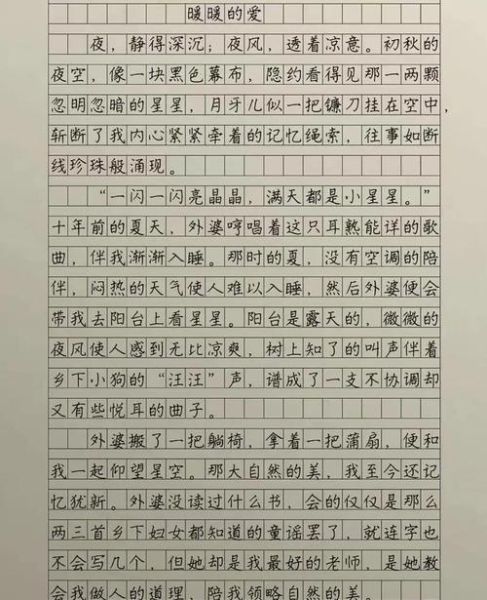 暖暖的爱
夜，静得深沉；夜风，透着凉意。初秋的
夜空，像一块黑色幕布，隐约看得见那一两颗
忽明忽暗的星星，月牙儿似一把镰刀挂在空中，
斩断了我内心紧紧牵着的记忆绳索，往事如断
线珍珠般涌现。
“一闪一闪亮晶晶，满天都是小星星。”
十年前的夏天，外婆哼唱着这只耳熟能详的歌
曲，伴我渐渐入睡。那时的夏，没有空调的陪
伴，闷热的天气使人难以入睡，然后外婆便会
带我去阳台上看星星。阳台是露天的，微微的
夜风使人感到无比凉爽，树上知了的叫声伴着
乡下小狗的“汪汪”声，谱成了一支不协调却
又有些悦耳的曲子。
外婆搬了一把躺椅，拿着一把蒲扇，便和
我一起仰望星空。那大自然的美，我至今还记
忆犹新。外婆没读过什么书，会的仅仅是那么
两三首乡下妇女都知道的童谣罢了，就连字也
不会写几个，但她却是我最好的老师，是她教
会我做人的道理，陪我领略自然的美。